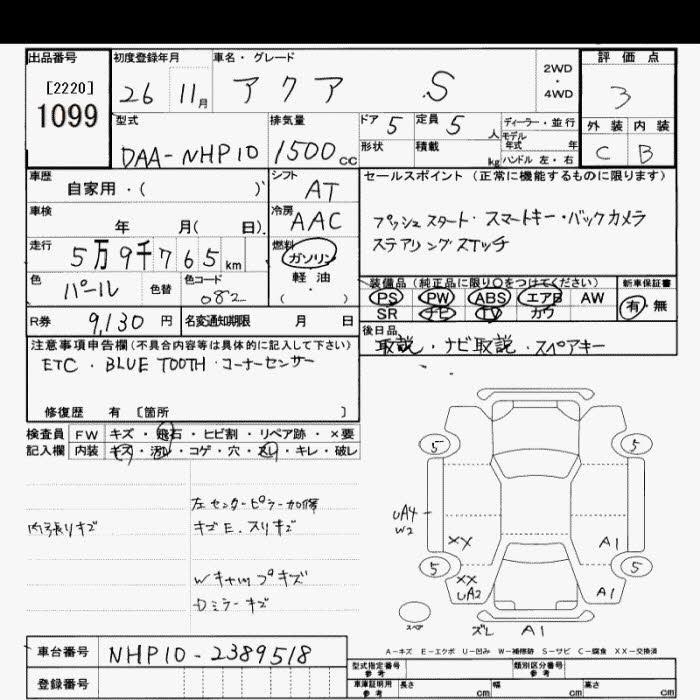 出品番号
[2220]
1099
初度登録年月
26 11月
車名・グレード
アクア S
2WD
・
4WD
評価点
3
外装 内装
C B
型式
DAA-NHP10
排気量
1500cc
ドア 5
定員 5人
形状
積載 kg
ディーラー・並行
モデル
年式 年
ハンドル 左・右
車歴
自家用・( )
シフト
AT
車検
年 月( 日)
冷房
AAC
走行
5万9千765km
燃料
ガソリン
軽油
( )
色
パール
色替
色コード
082
R券 9,130円
名変通知期限 月 日
セールスポイント(正常に機能するものに限ります)
プッシュスタート・スマートキー・バックカメラ
ステアリングスイッチ
装備品(純正品に限り○をつけてください)
PS PW ABS エアB AW
SR ナビ TV カワ
新車保証書
有・無
後日品
取説・ナビ取説・スペアキー
注意事項申告欄(不具合内容等は具体的に記入して下さい)
ETC・BLUE TOOTH・コーナーセンサー
修復歴 有 [箇所 ]
検査員
記入欄
FW キズ・飛石・ヒビ割・リペア跡・×要
内装 キズ・汚れ・コゲ・穴・スレ・キレ・破レ
内張りキズ
左センターピラー加修
キズE.スリキズ
Wキャップキズ
Dミラーキズ
5 5
UA4
W2
XX A1
5 5
XX
UA2
A1
スペア
ズレ A1
A-キズ E-エクボ U-凹み W-補修跡 S-サビ C-腐食 XX-交換済
車台番号 NHP10-2389518
登録番号
型式指定番号
参考
類別区分番号
参考
車庫証明用
参考
長さ cm
幅 cm
高さ cm